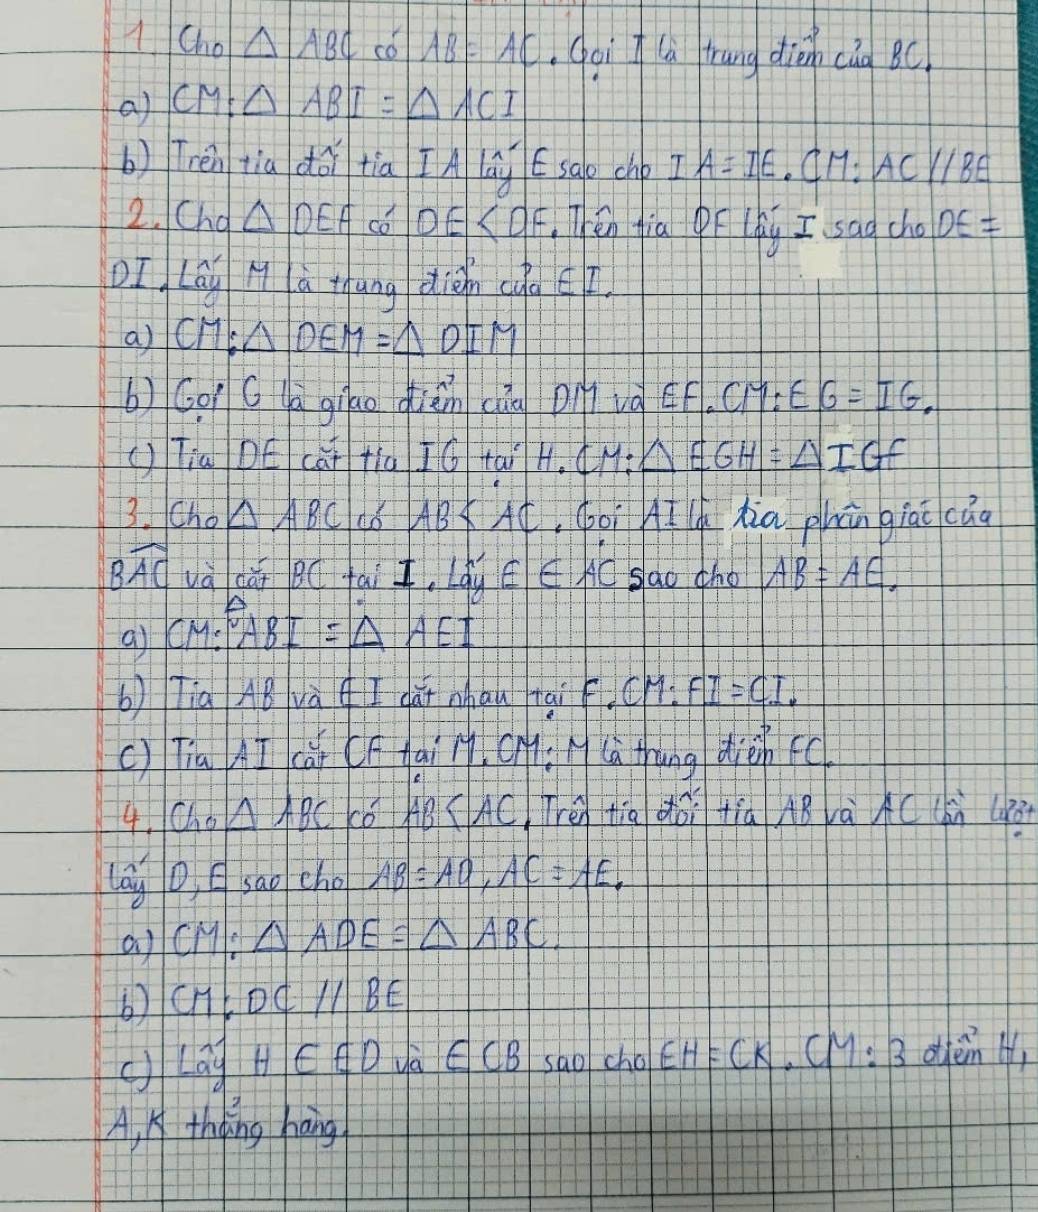 1. Cho △ ABC có AB = AC. Gọi I là trung điểm của BC.
a) CM: △ ABI = △ ACI
b) Trên tia đối tia IA lấy E sao cho IA = IE. CM: AC // BE
2. Cho △ DEF có DE < DF. Trên tia DF lấy I sao cho DE =
DI. Lấy M là trung điểm của EI.
a) CM: △ DEM = △ DIM
b) Gọi G là giao điểm của DM và EF. CM: EG = IG.
c) Tia DE cắt tia IG tại H. CM: △ EGH = △ IGF
3. Cho △ ABC có AB < AC. Gọi AI là tia phân giác của
\widehat{BAC} và cắt BC tại I. Lấy E ∈ AC sao cho AB = AE.
a) CM: △ ABI = △ AEI
b) Tia AB và EI cắt nhau tại F. CM: FI = CI.
c) Tia AI cắt CF tại M. CM: M là trung điểm FC.
4. Cho △ ABC có AB < AC. Trên tia đối tia AB và AC lần lượt
lấy D, E sao cho AB = AD, AC = AE.
a) CM: △ ADE = △ ABC.
b) CM: DC // BE
c) Lấy H ∈ ED và ∈ CB sao cho EH = CK. CM: 3 điểm H,
A, K thẳng hàng.